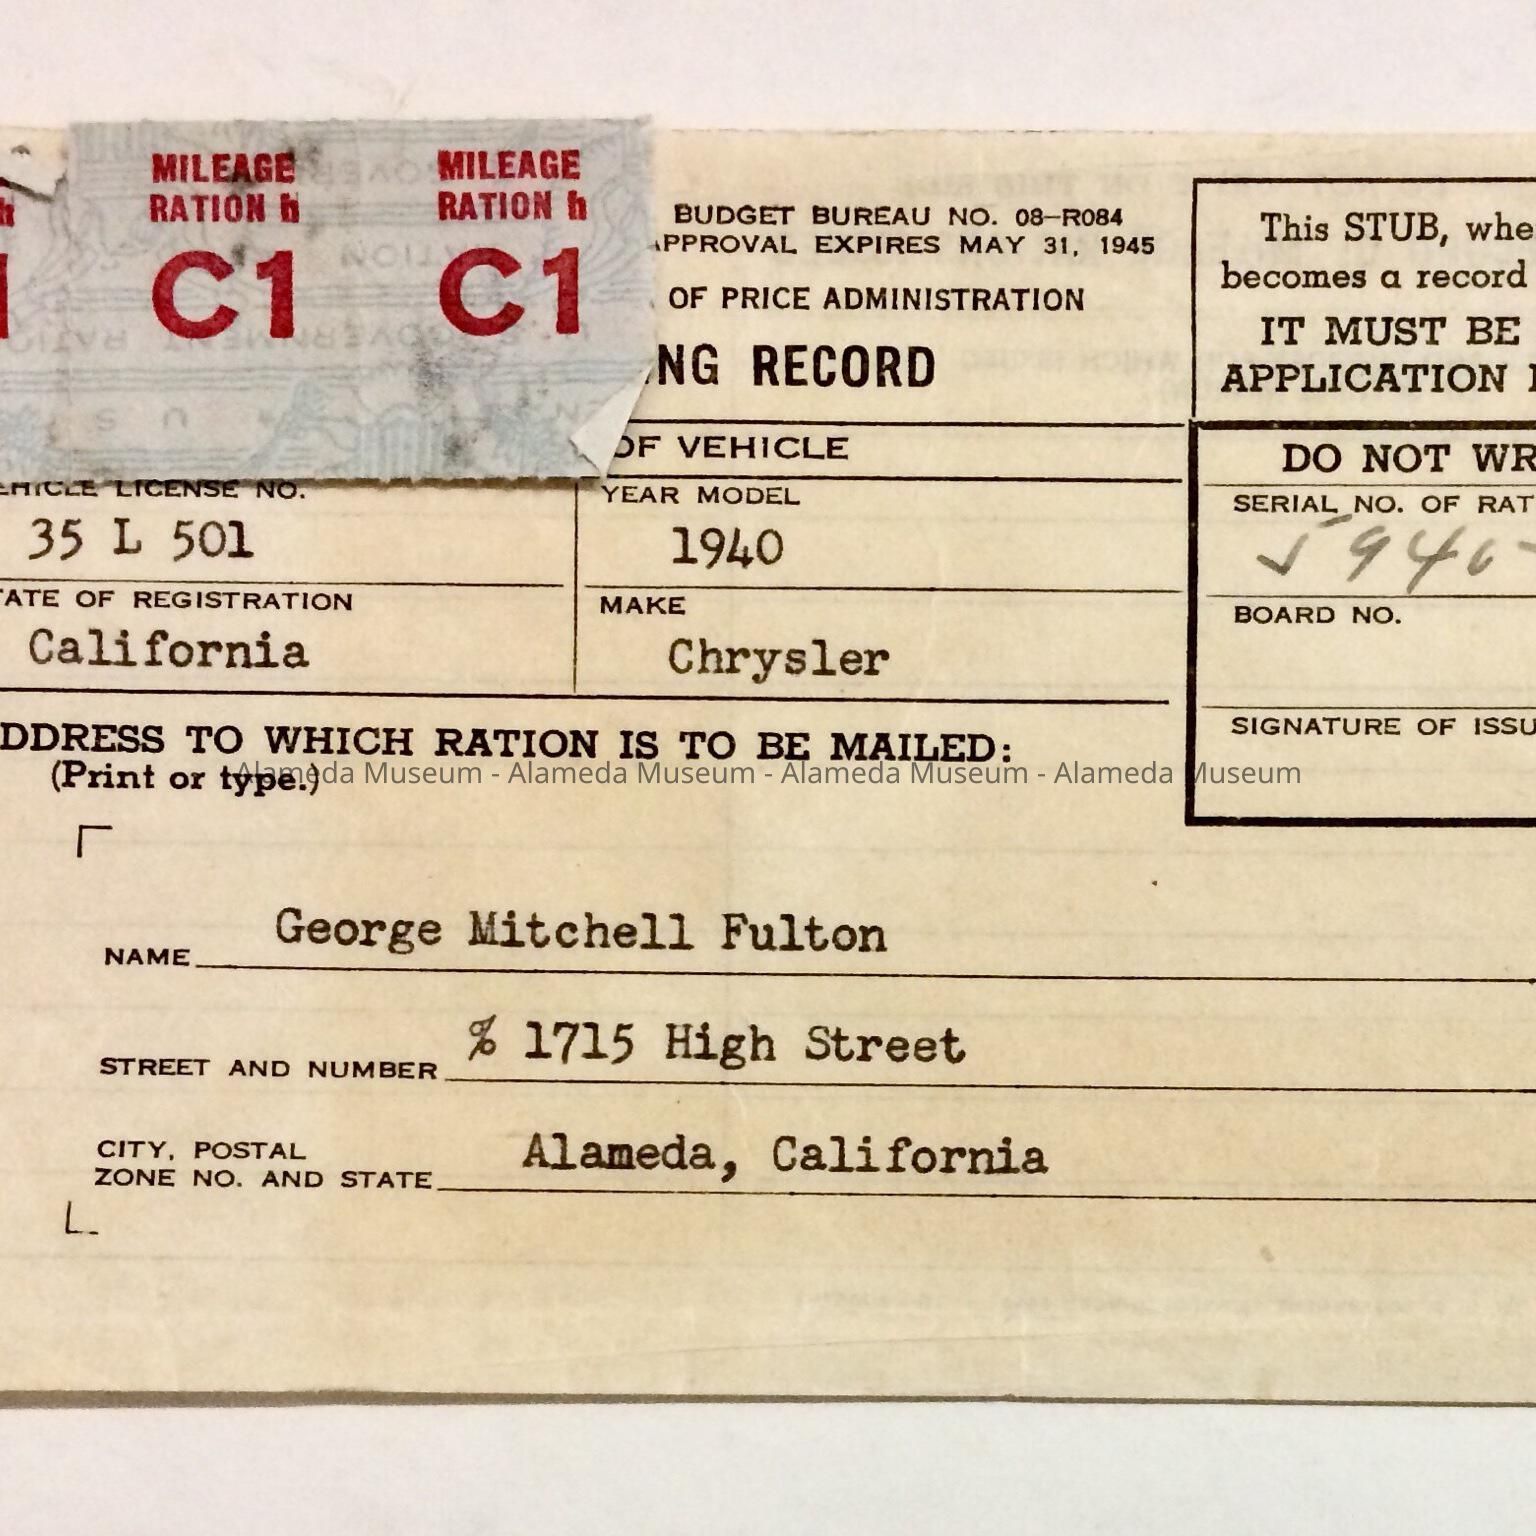 MILEAGE
RATION h
C1
MILEAGE
RATION h
C1
h
BUDGET BUREAU NO. 08-R084
APPROVAL EXPIRES MAY 31, 1945
OF PRICE ADMINISTRATION
NG RECORD
OF VEHICLE
EHICLE LICENSE NO.
35 L 501
YEAR MODEL
1940
TATE OF REGISTRATION
California
MAKE
Chrysler
This STUB, whe
becomes a record
IT MUST BE
APPLICATION
DO NOT WR
SERIAL NO. OF RAT
BOARD NO.
SIGNATURE OF ISSU
DDRESS TO WHICH RATION IS TO BE MAILED:
(Print or type.)
Alameda Museum - Alameda Museum - Alameda Museum - Alameda Museum
NAME George Mitchell Fulton
STREET AND NUMBER % 1715 High Street
CITY, POSTAL
ZONE NO. AND STATE Alameda, California